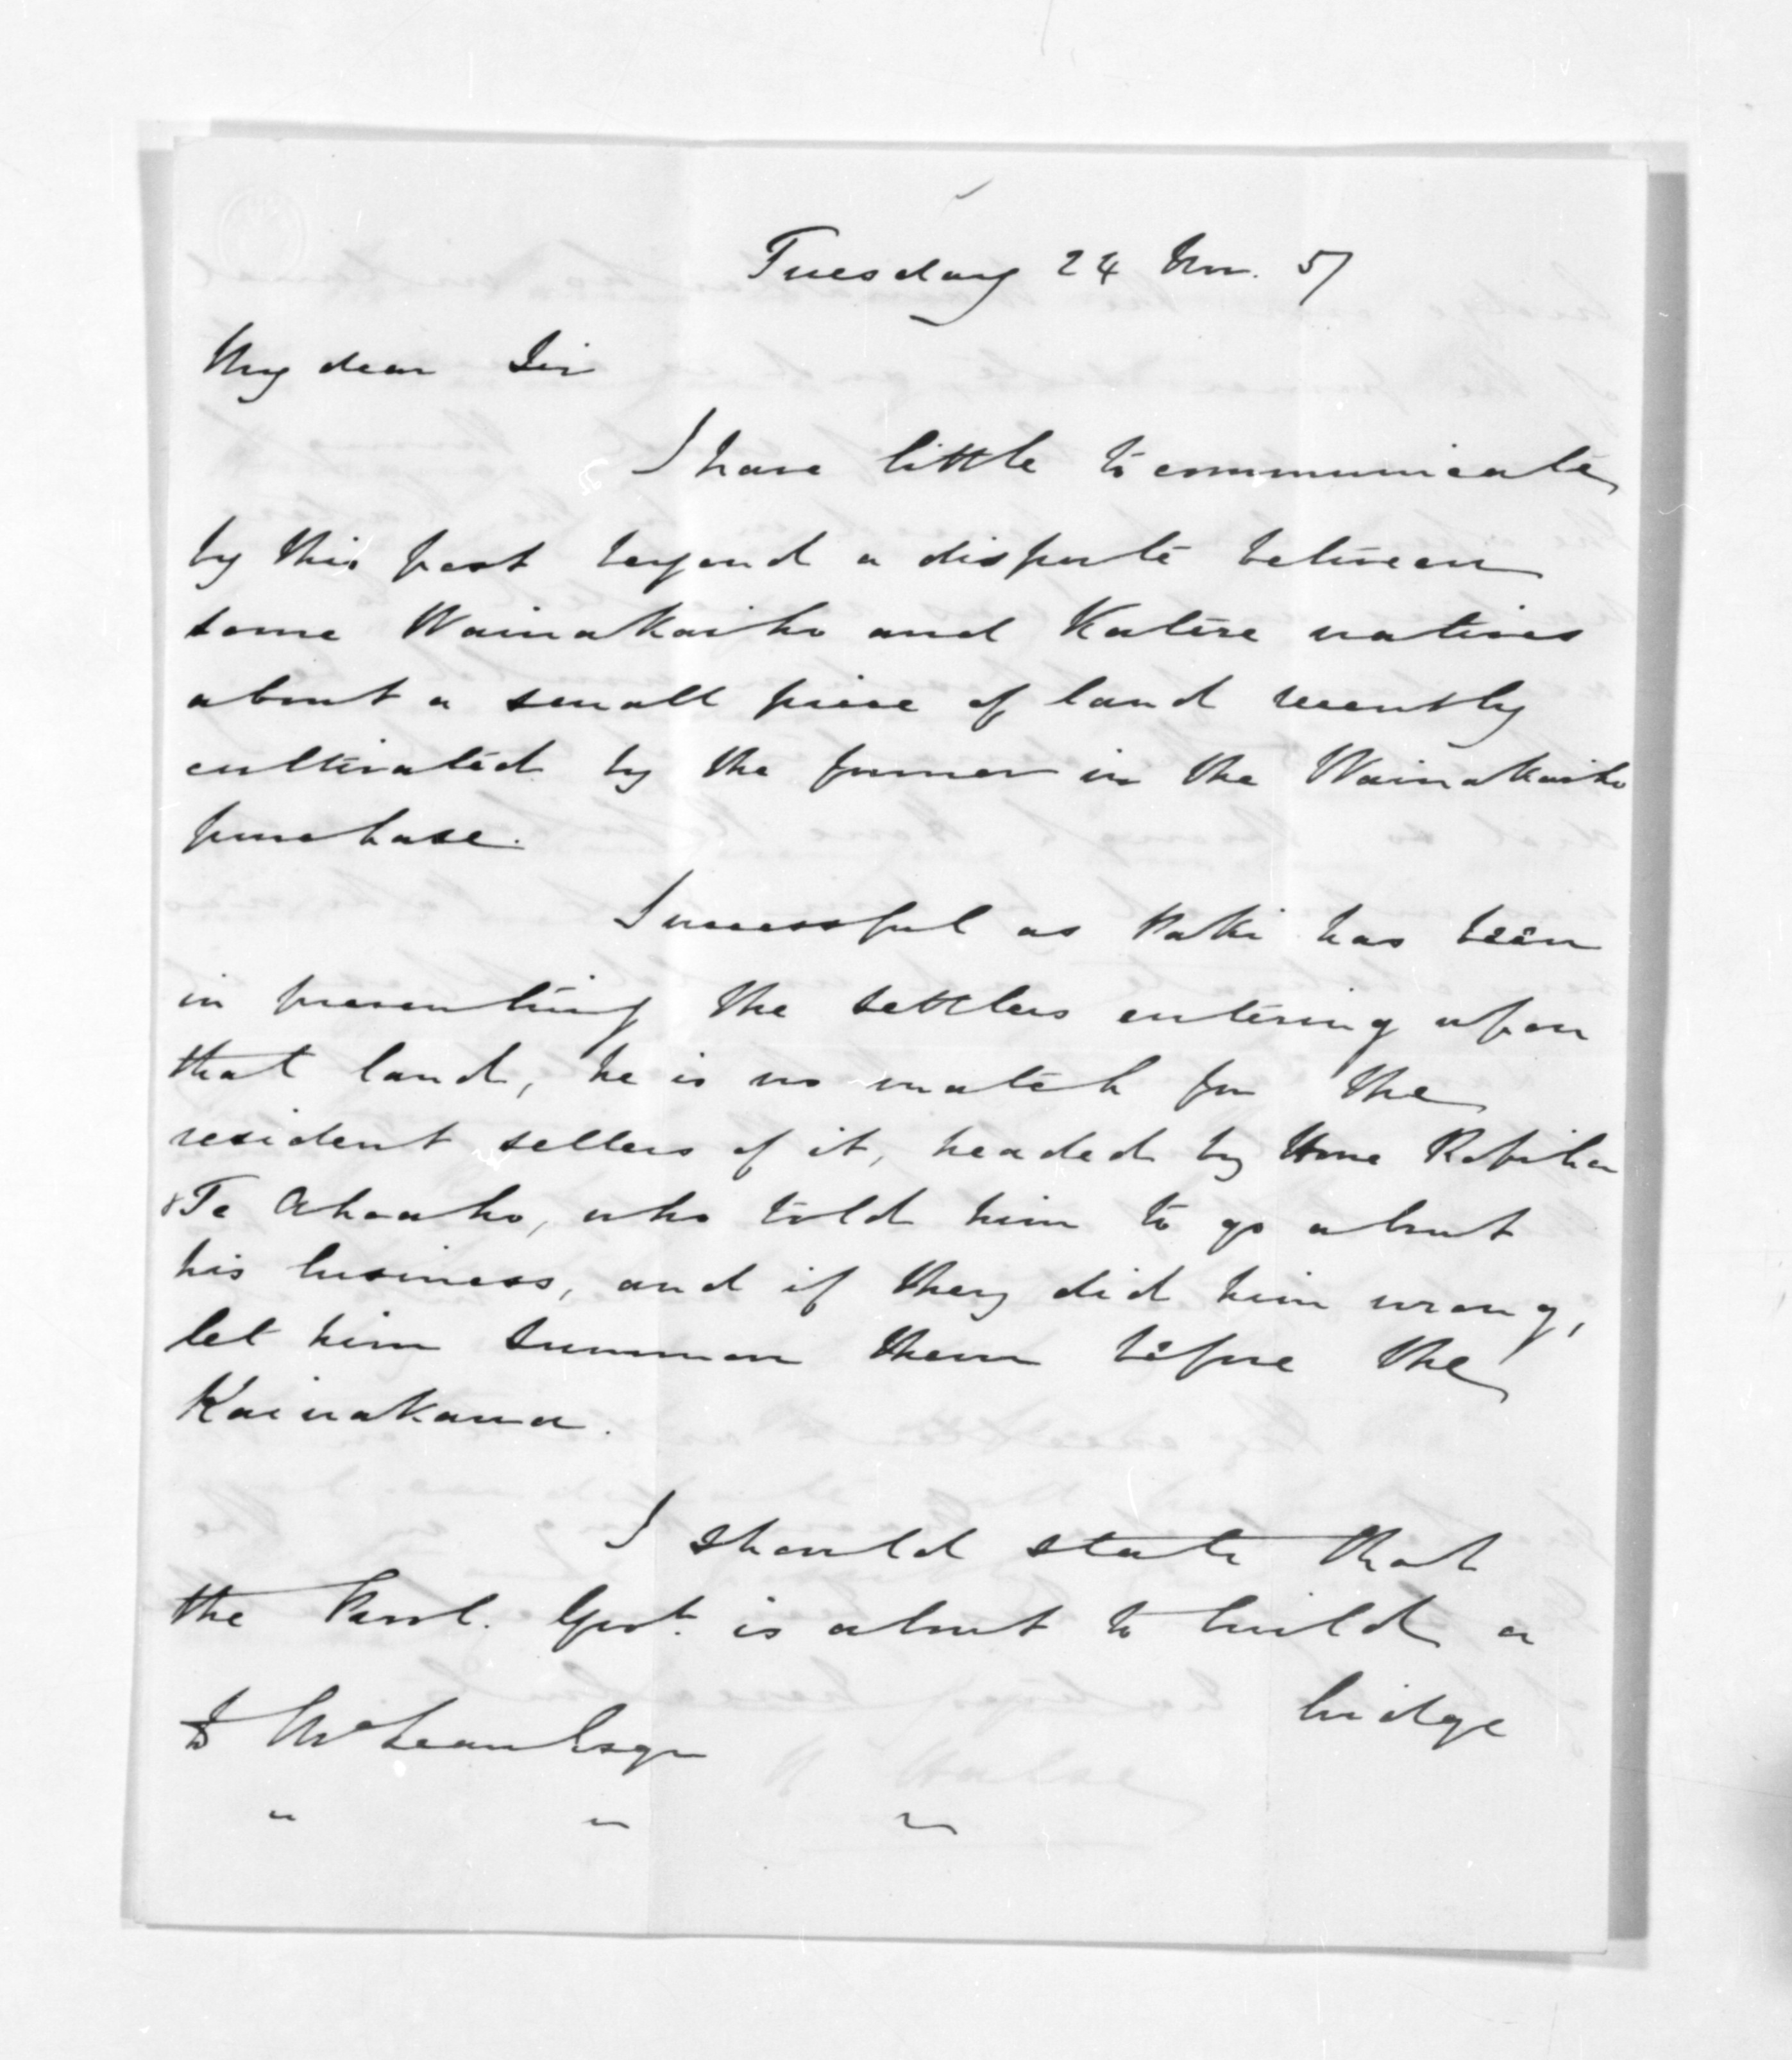 Tuesday 24 Nov. 57
My dear Sir
I have little to communicate
by this post beyond a dispute between
some Waiwakaiho and Katere natives
about a small piece of land recently
cultivated by the former in the Waiwakaiho
purchase.
Successful as Paki has been
in preventing the settlers entering upon
that land, he is no match for the
resident sellers of it, headed by Hone Ropiha
& Te Ahoaho, who told him to go about
his business, and if they did him wrong,
let him summon them before the
Kaiwakawa.
I should state that
the Provl. Govt. is about to build a
bridge
D McLean Esqr
" " "